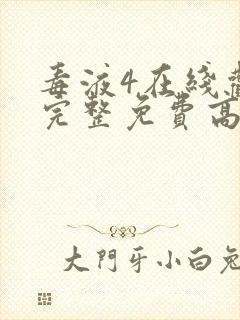 毒液4在线
完整免費高
大門牙小白兔